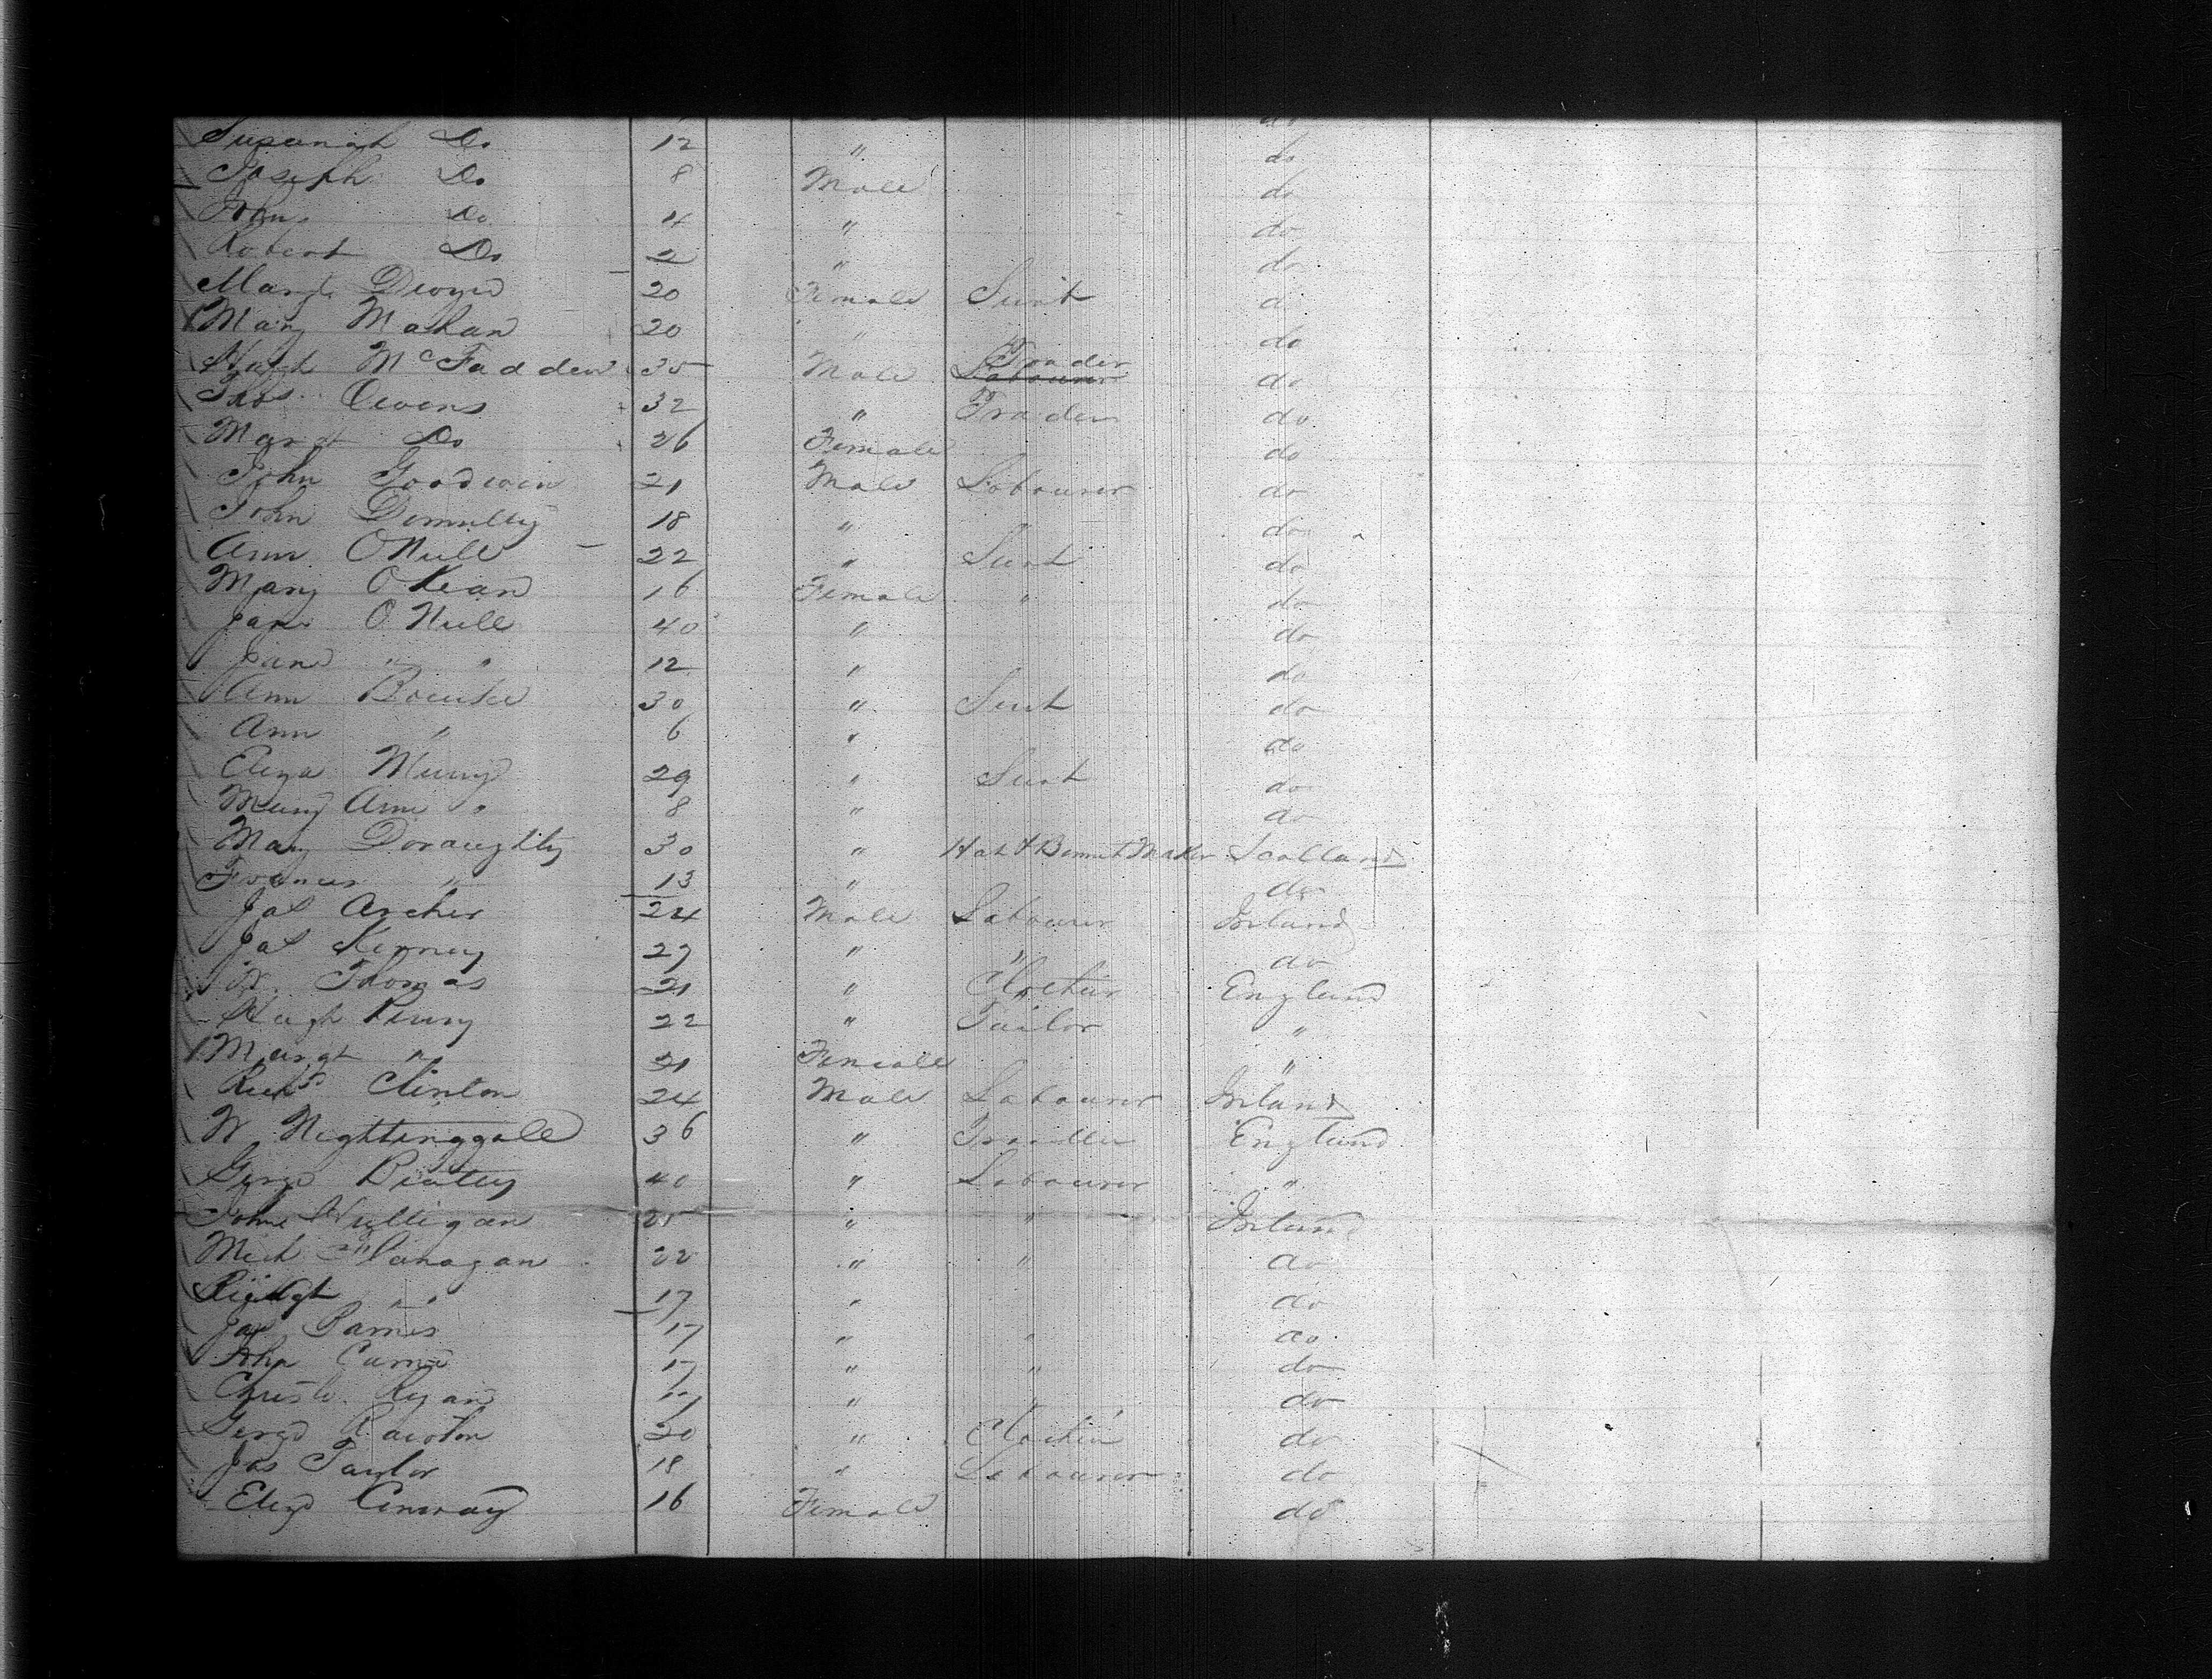 Susanah Do 12 " do
Joseph Do 8 Male do
John Do 4 " do
Robert Do 2 " do
Margt Dwyer 20 Female Sert d
Mary Mahan 20 " do
Hugh McFadden 35 Male Labourer Trader do
Thos. Owens 32 " Trader do
Margt Do 26 Female do
John Goodwin 21 Male Labourer do
John Donnelly 18 " do
Ann ONeill 22 " Sert do
Mary OKean 16 Female " do
Jane ONeill 40 " do
Jane " " 12 " do
Ann 30 " Sert do
Ann " 6 " do
Eliza Murry 29 " Sert do
Mary Ann " 8 " do
Mary Doraughty 30 " Hat & Bonnet Maker Scotland
Frances " 13 " do
Jas Archer 24 Male Labourer Ireland
Jas Kenney 27 " " do
W. Thomas 21 " Clothier England
Hugh Penny 22 " Tailor "
Margt " 21 Female "
Richd Clinton 24 Male Labourer Ireland
W Nightinggale 36 " England
George Beatey 40 " Labourer "
John 25 " " Ireland
Mich Flanagan 22 " " do
" " 17 " do
Jas 17 " " do
John 17 " " do
Christr. Ryan 17 " " do
George Rawston 20 " Clothier do
Jas Taylor 18 " Labourer do
Eliza Conway 16 Female do